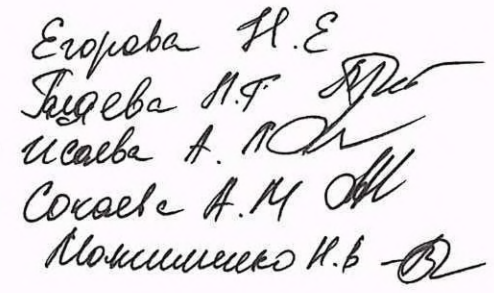 Егорова Н.Е
Гадаева Н.Г
Исаева А. Л
Сокаева А.М
Максименко Н.В